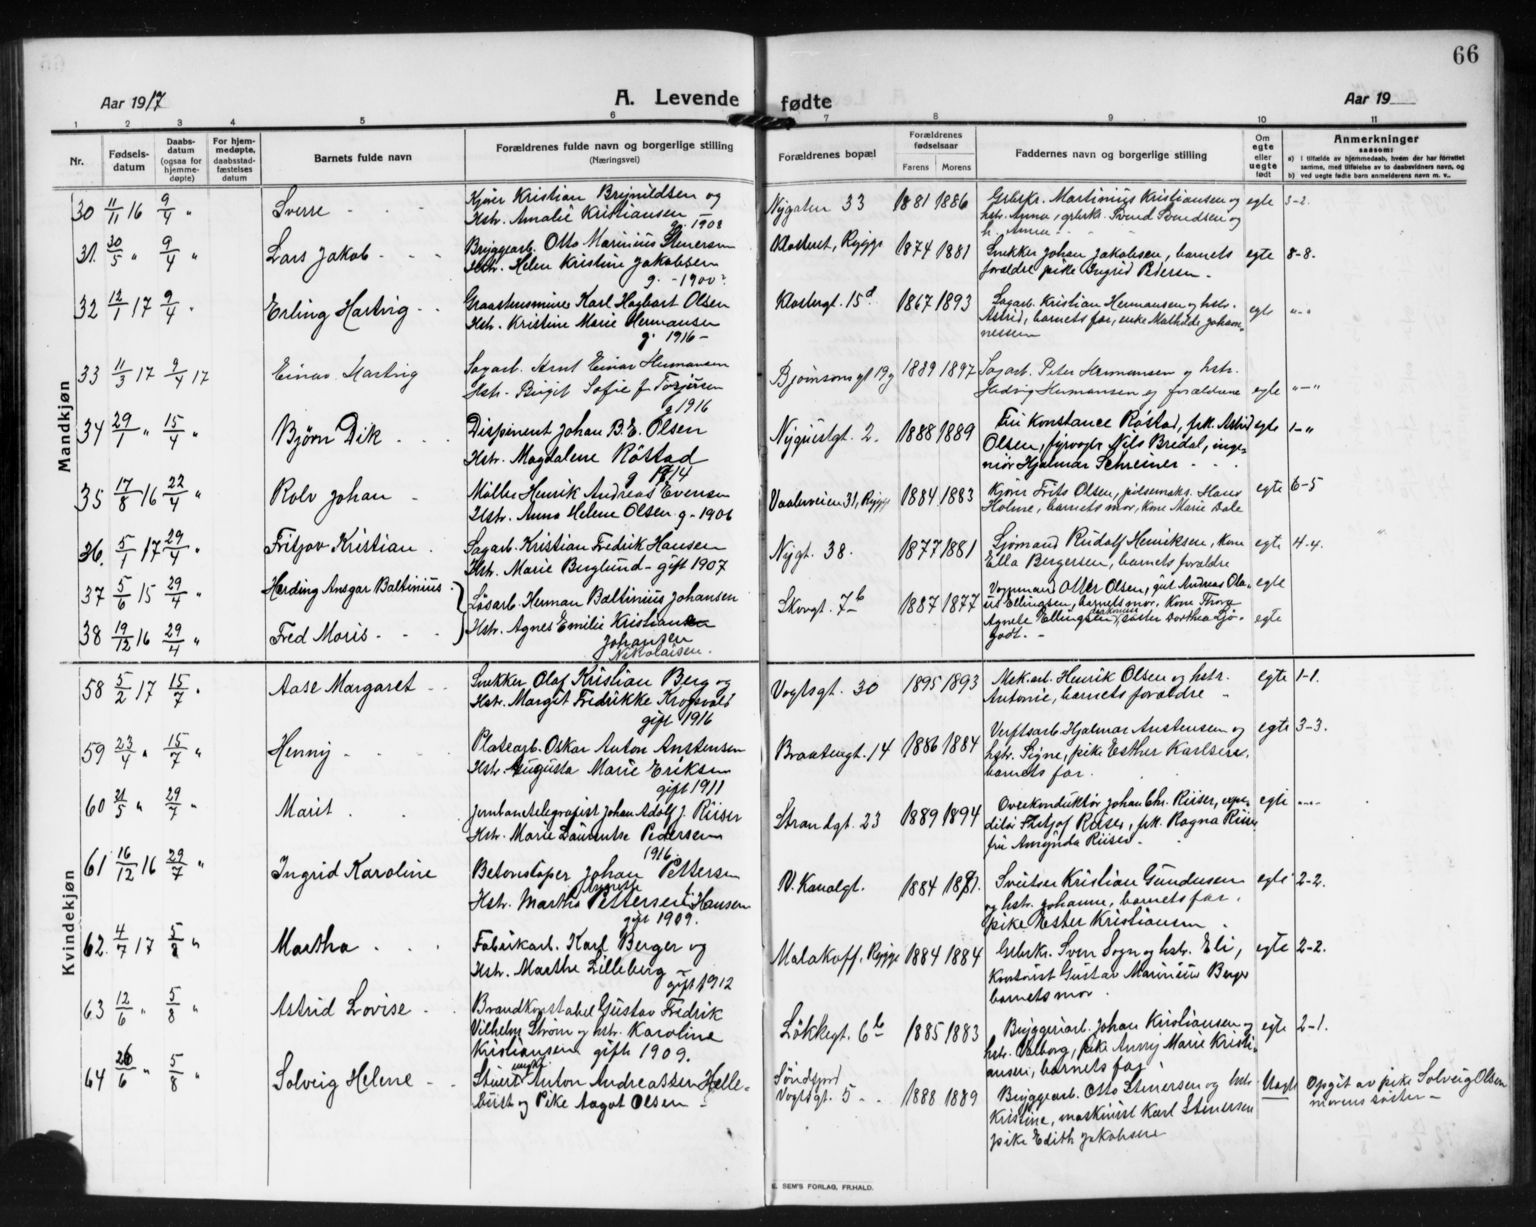 66
Aar 1917
A. Levende fødte
Aar 19
1 2 3 4 5 6 7 8 9 10 11
Nr.
Fødsels-
datum
Daabs-
datum
(ogsaa for
hjemme-
døpte)
For hjem-
medøpte,
daabsstad-
fæstelses
datum
Barnets fulde navn
Forældrenes fulde navn og borgerlige stilling
(Næringsvei)
Forældrenes bopæl
Forældrenes
fødselsaar
Farens Morens
Faddernes navn og borgerlige stilling
Om
egte
eller
uegte
født
Anmerkninger
saasom:
a) i tilfælde av hjemmedaab, hvem der har forrettet
samme, med tilføielse av to daabsvidners navn, og
b) ved uegte fødte barn anmelderens navn m. v.
Mandkjøn
30 11/11 16 9/4 " Sverre - - -
Kjører Kristian Brynildsen og
Hstr. Amalie Kristiansen
g. 1908
Nygaten 33 1881 1886
Grbrk. Martinius Kristiansen og
hstr. Anna, grbrk. Svend Svendsen og
egte 3-2.
31. 30/5 " 9/4 " Lars Jakob - - -
Bryggearb. Otto Marinius Stenersen
Hstr. Helen Kristine Jakobsen
g. - 1900
Klosteret, Rygge 1874 1881
Snekker Johan Jakobsen, barnets
forældre pike Ingrid Pedersen -
egte 8-8.
32 12/1 17 9/4 " Erling Hartvig - -
Graastensminer Karl Hagbart Olsen
Hstr. Kristine Marie Hermansen
g. 1916 -
Klostergt. 15d 1867 1893
Sagarb. Kristian Hermansen og hstr.
Astrid, barnets far, enke Mathilde Johan-
nessen
egte "-"
33 11/3 17 9/4 17 Einar Hartvig
Sagarb. Arnt Einar Hermansen
Hstr. Birgit Sofie f. Torjusen
g 1916
Bjørnsonsgt 19g 1889 1897
Sagarb. Peter Hermansen og hstr.
Hedvig Hermansen og forældrene
egte "-"
34 29/1 " 15/4 " Bjørn Dik - - -
Disponent Johan B. E. Olsen
Hstr. Magdalene Røstad
g 1914
Nyquistgt. 2. 1888 1889
Fru Konstance Røstad, frk. Astrid
Olsen, fyrvogter Nils Bredal, inge-
niør Hjalmar Schreiner - - -
egte 1-"
35 17/8 16 22/4 " Rolv Johan -
Møller Henrik Andreas Evensen
Hstr. Anna Helene Olsen g - 1906
Vaalerveien 31, Rygge 1884 1883
Kjører Frits Olsen, pølsemaks. Hans
Holme, barnets mor, kone Marie Dale
egte 6-5
36. 5/1 17 29/4 " Fritjov Kristian -
Sagarb. Kristian Fredrik Hansen
Hstr. Marie Berglund - gift 1907
Nygt. 38. 1877 1881
Sjømand Rudolf Henriksen, kone
Ella Bergersen, barnets forældre
egte 4-4.
37 5/6 15 29/4 " Harding Ansgar Baltinius
38 19/12 16 29/4 " Fred Moris - - -
Løsarb. Herman Baltinius Johansen
Hstr. Agnes Emilie Kristiansen
Johansen
Nikolaisen.
Skovgt. 7b 1887 1877
Vognmand Otter Olsen, gut Andreas Ola-
us Ellingsen, barnets mor, kone Thora
Agnele Ellingsen, søster Dorthea Gjo-
godt. -
egte
egte
Kvindekjøn
58 5/2 17 15/7 " Aase Margaret - -
Snekker Olaf Kristian Berg og
Hstr. Margit Fredrikke Krogsvold
gift 1916
Vogtsgt. 30 1895 1893
Mek.arb. Henrik Olsen og hstr.
Antonie, barnets forældre -
egte 1-1.
59 23/4 " 15/7 " Henny - - -
Platearb. Oskar Anton Anstensen
Hstr. Augusta Marie Eriksen
gift 1911
Braatengt. 14 1886 1884
Verftsarb. Hjalmar Anstensen og
hstr. Signe, pike Esther Karlsen,
barnets far.
egte 3-3.
60 21/5 " 29/7 " Marit -
Jernbanetelegrafist Johan Adolf J. Riiser
Hstr. Marie Laurentse Pedersen
1916.
Strandgt. 23 1889 1894
Overkonduktør Johan Chr. Riiser, expe-
ditør Thitjof Riiser, frk. Ragna Riiser
fru Amynda Riiser. -
egte "-"
61 16/12 16 29/7 " Ingrid Karoline
Betonstøper Johan Pettersen
Hstr. Martha Annette Pettersen f. Hansen
gift 1909.
N. Kanalgt. 1884 1881.
Sveitser Kristian Gundersen
og hstr. Johanne, barnets far,
pike Ester Kristiansen -
egte 2-2.
62. 4/7 17 5/8 " Martha - - -
Fabrikarb. Karl Berger og
Hstr. Marthe Lilleberg
gift 1912
Malakoff, Rygge 1884 1884
Grbrk. Sven Sogn og hstr. Eli,
Kontorist Gustav Marinius Berger
barnets mor.
egte 2-2.
63 12/6 " 5/8 " Astrid Lovise - -
Brandkonstabel Gustav Fredrik
Vilhelm Strøm og hstr. Karoline
Kristiansen gift 1909.
Løkkegt. 6b 1885 1883
Bryggeriarb. Johan Kristiansen og
hstr. Valborg, pike Anny Marie Kristi-
ansen, barnets far.
egte 2-1.
64 26/6 " 5/8 " Solveig Helene - -
Stuert ungk. Anton Andreassen Helle-
bust og Pike Aagot Olsen -
Søndfjord
Vogtsgt. 5 - - 1888 1889
Bryggearb. Otto Stenersen og hstr.
Kristine, maskinist Karl Stenersen
pike Edith Jakobsen
Uegte Opgit av pike Solveig Olsen
morens søster -
E. SEM'S FORLAG, FR.HALD.